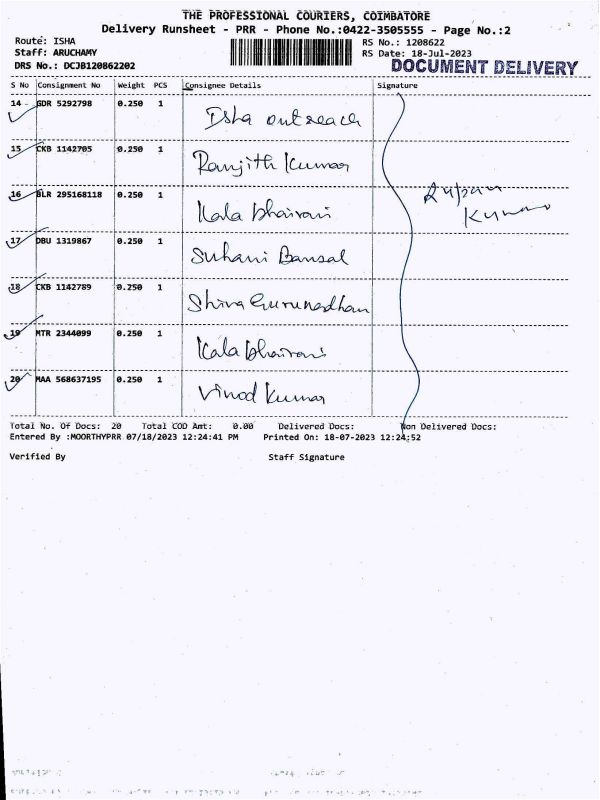 THE PROFESSIONAL COURIERS, COIMBATORE
Delivery Runsheet - PRR - Phone No.:0422-3505555 - Page No.:2
Route: ISHA RS No.: 1208622
Staff: ARUCHAMY RS Date: 18-Jul-2023
DRS No.: DCJB120862202 DOCUMENT DELIVERY
S No Consignment No Weight PCS Consignee Details Signature
14 GDR 5292798 0.250 1 Isha outreach
15 CKB 1142705 0.250 1 Ranjith Kumar
16 BLR 295168118 0.250 1 Kala bhairavi
Kumar
17 DBU 1319867 0.250 1 Suhani Bansal
18 CKB 1142789 0.250 1 Shiva Gurunadhan
19 MTR 2344099 0.250 1 Kala bhairavi
20 MAA 568637195 0.250 1 Vinod Kumar
Total No. Of Docs: 20 Total COD Amt: 0.00 Delivered Docs: Non Delivered Docs:
Entered By :MOORTHYPRR 07/18/2023 12:24:41 PM Printed On: 18-07-2023 12:24:52
Verified By Staff Signature